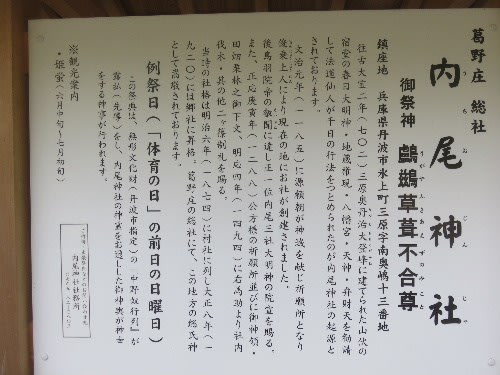 葛野庄 総社
内尾神社
うちおじんじゃ
御祭神 鸕鷀草葺不合尊
うがやふきあえずのみこと
鎮座地 兵庫県丹波市氷上町三原字南奥嶋十三番地
往古大宝二年(七〇二)三原奥丹治大登峰に建てられた山伏の
宿堂の春日大明神・地蔵権現・八幡宮・天神・弁財天を勧請
して法道仙人が千日の行法をつとめられたのが内尾神社の起源と
されております。
文治元年(一一八五)に源頼朝が神域を献じ祈願所となり
俊乗上人により現在の地にお社が創建されました。
後鳥羽院帝の敬聞に達し正一位内尾三社大明神の院宣を賜る。
また、正応庚寅年(一二八八)公方様の祈願所並びに御神領・
田訪栗林之御下文、明応四年(一四九四)に右馬助より社内
伐木・其の他二ヶ條制札を賜る。
当時の社格は明治六年(一八七四)に村社に列し大正八年(一
九二〇)には郷社に昇格、葛野庄の総社にて、この地方の総氏神
として崇敬されております。
例祭日(「体育の日」の前日の日曜日)
この祭典は、無形文化財(丹波市指定)の『中野奴行列』が
露払(先導)をし、内尾神社の神霊をお遷しした御神輿が神去
をする神事が行われます。
※観光案内
・姫蛍(六月中旬〜七月初旬)
内尾神社社務所